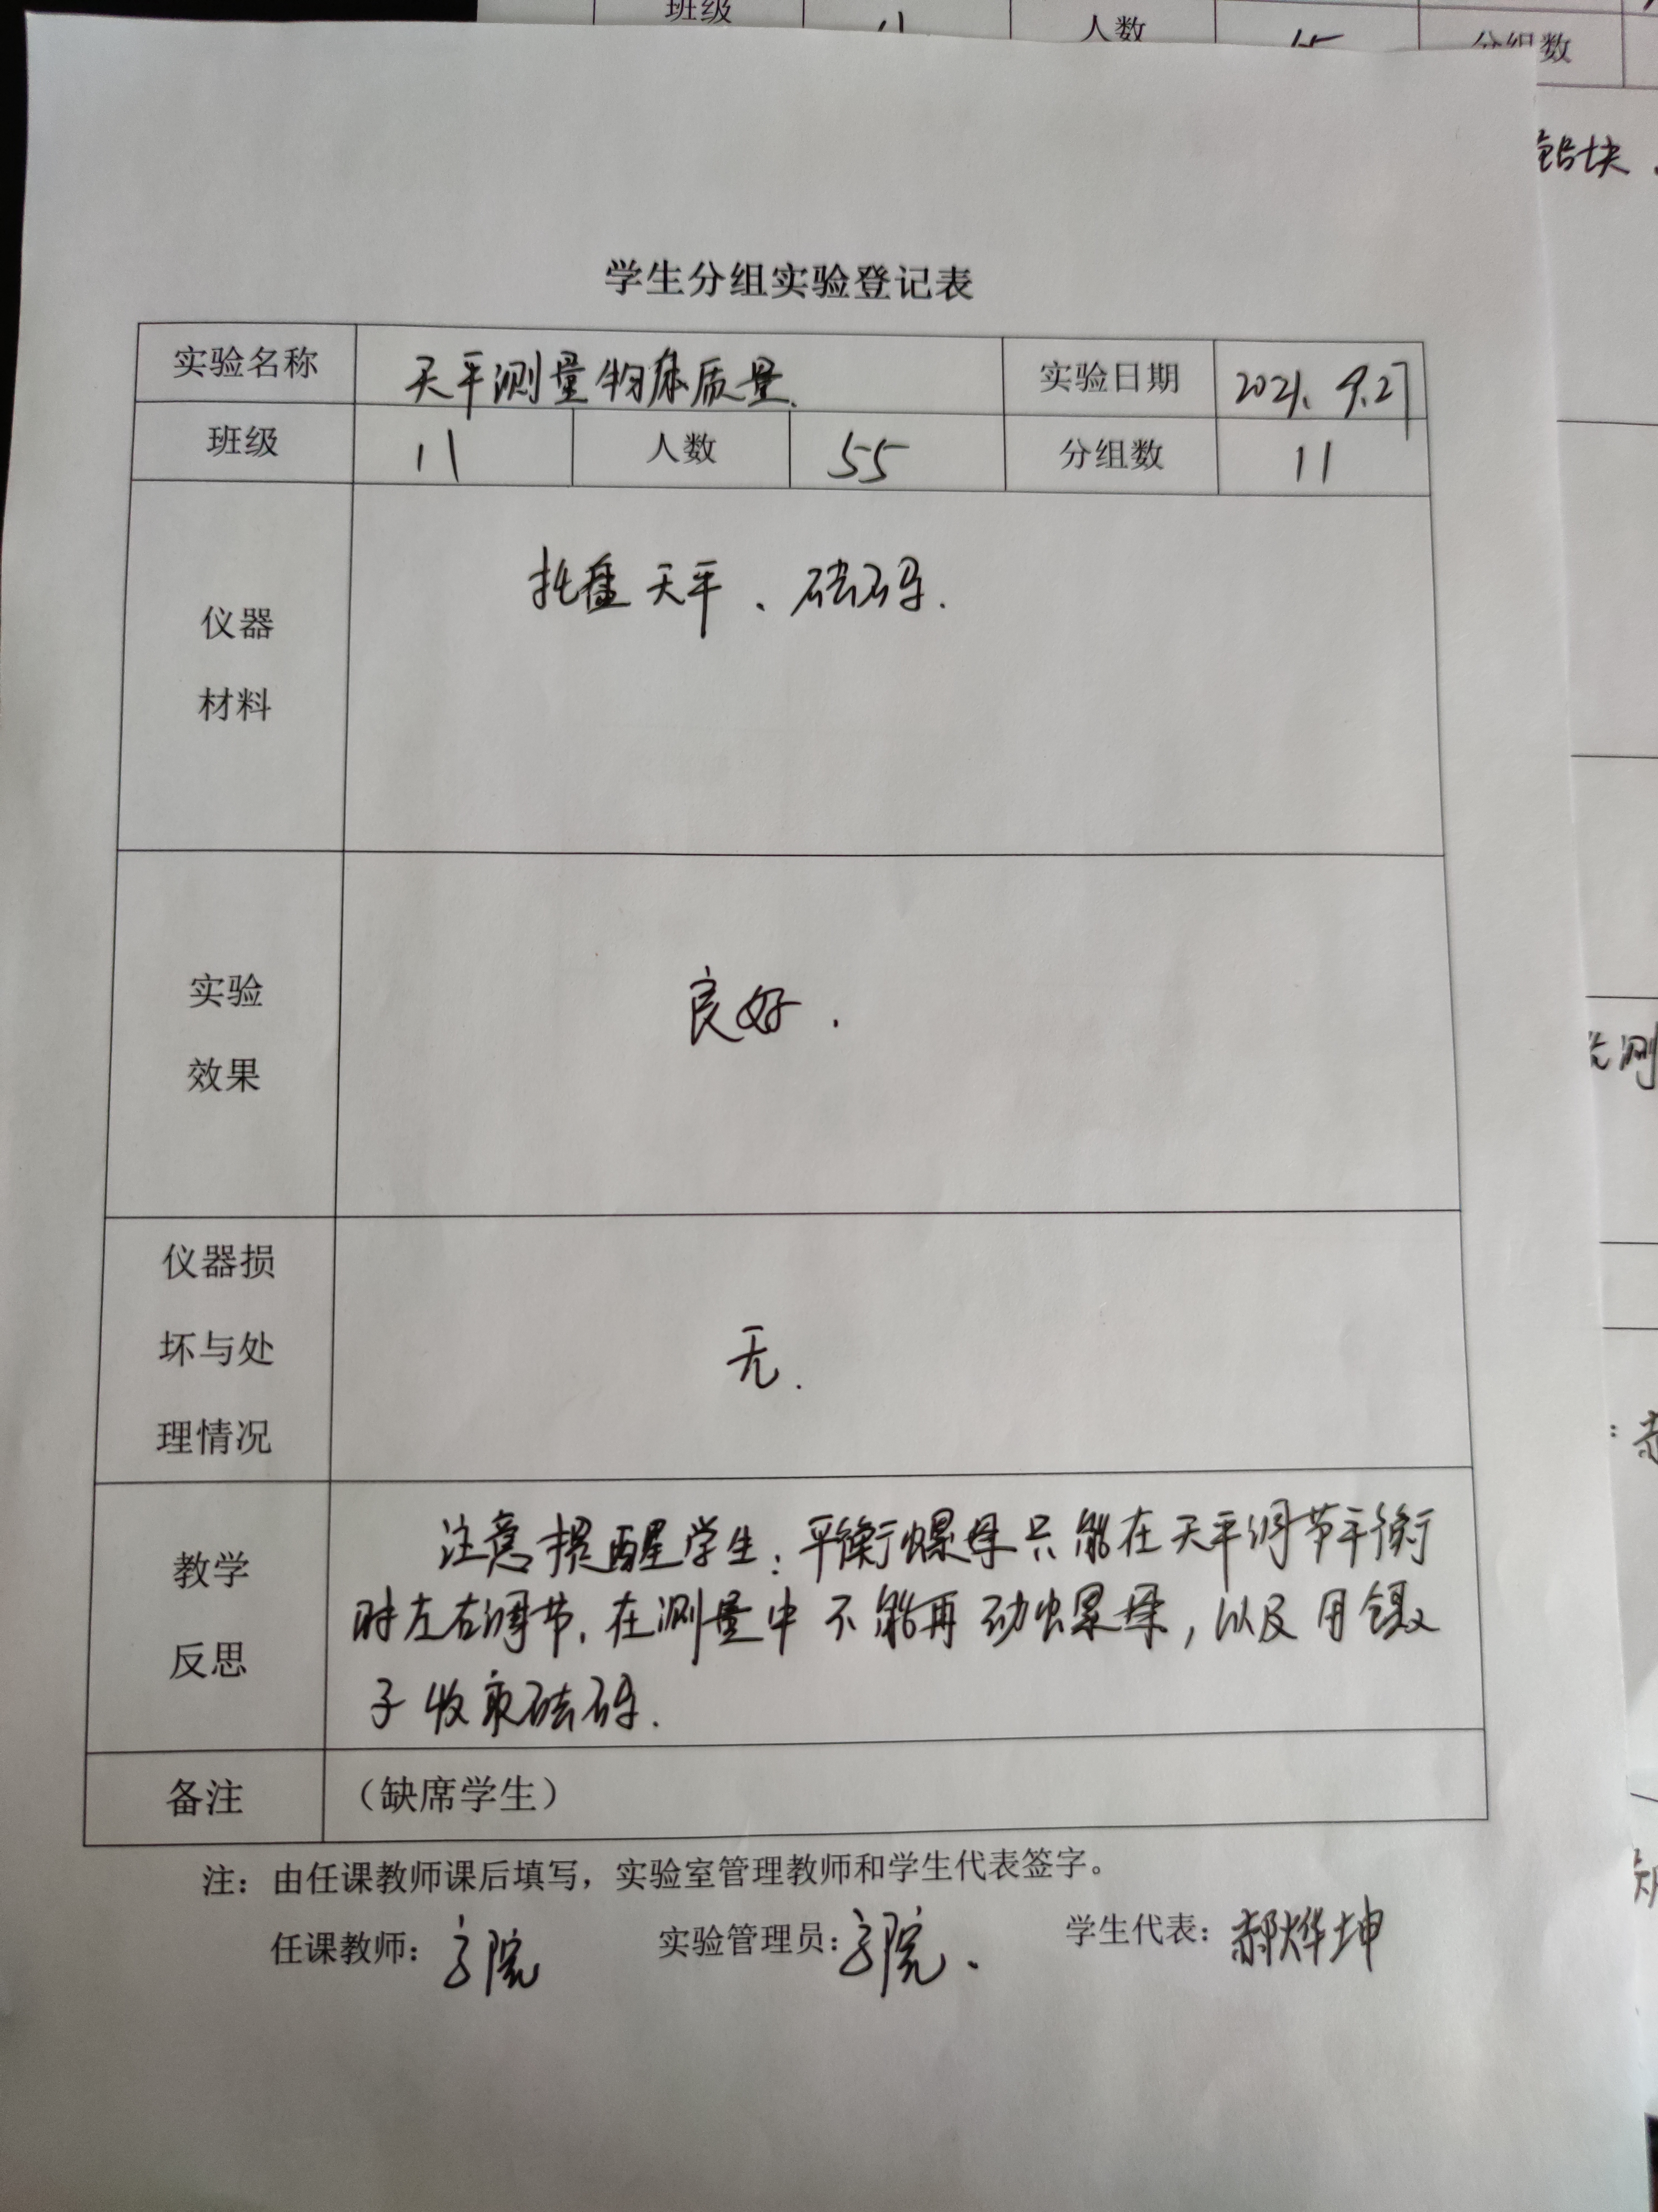 班级 11 人数 分组数
铅块
学生分组实验登记表
实验名称 天平测量物体质量. 实验日期 2021. 9.27
班级 11 人数 55 分组数 11
仪器
材料
托盘天平、砝码.
实验
效果
良好.
仪器损
坏与处
理情况
无.
教学
反思
注意提醒学生:平衡螺母只能在天平调节平衡
时左右调节,在测量中不能再动螺母,以及用镊
子收取砝码.
备注 (缺席学生)
注:由任课教师课后填写,实验室管理教师和学生代表签字。
任课教师: 实验管理员: 学生代表:郝烨坤